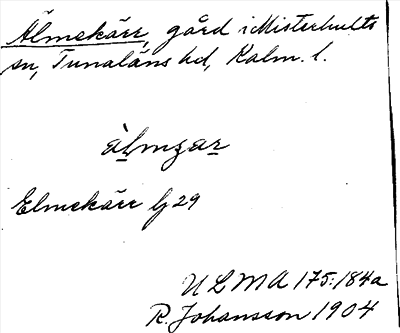 Älmekärr, gård i Misterhults
sn, Tunaläns hd, Kalm. l.
älmʒar
Elmekärr Lj 29
ULMA 175:184a
R. Johansson 1904